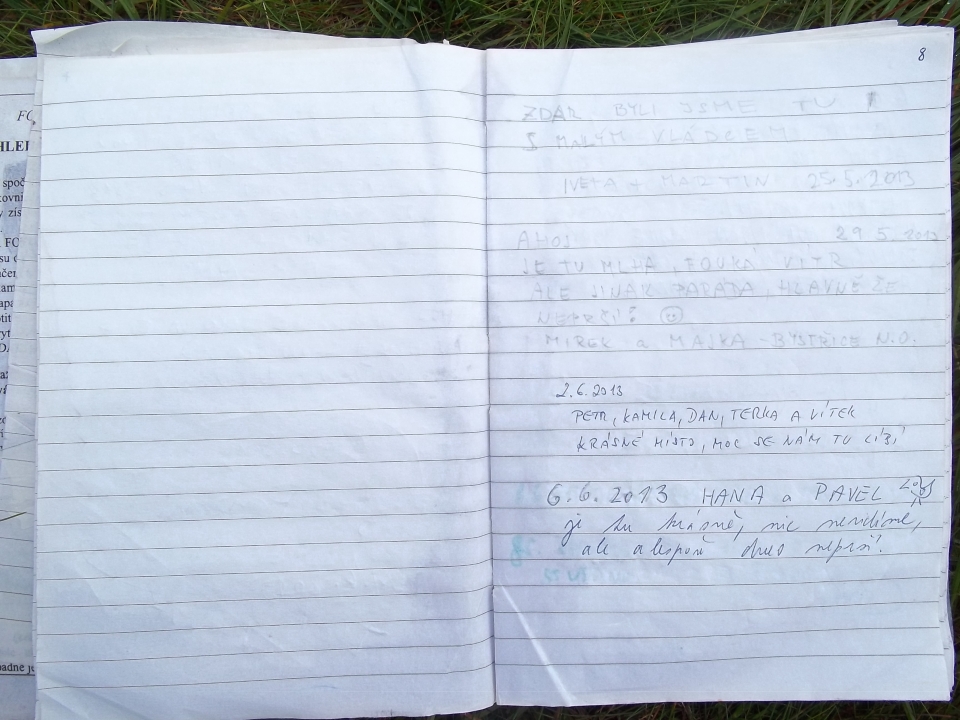 FO
HLED
spoč
kovní
y zís
FO
8
ZDAR BYLI JSME TU
S MALÝM VLÁDCEM
IVETA + MARTIN 25.5.2013
AHOJ 29 5. 2013
JE TU MLHA, FOUKÁ VÍTR
ALE JINAK PARÁDA, HLAVNĚ ŽE
NEPRŠÍ! ☺
MIREK a MAJKA - BYSTŘICE N.O.
2.6.2013
PETR, KAMILA, DAN, TERKA A VÍTEK
KRÁSNÉ MÍSTO, MOC SE NÁM TU LÍBÍ
6.6.2013 HANA a PAVEL
je tu krásně, nic nevidíme,
ale alespoň dnes neprší.